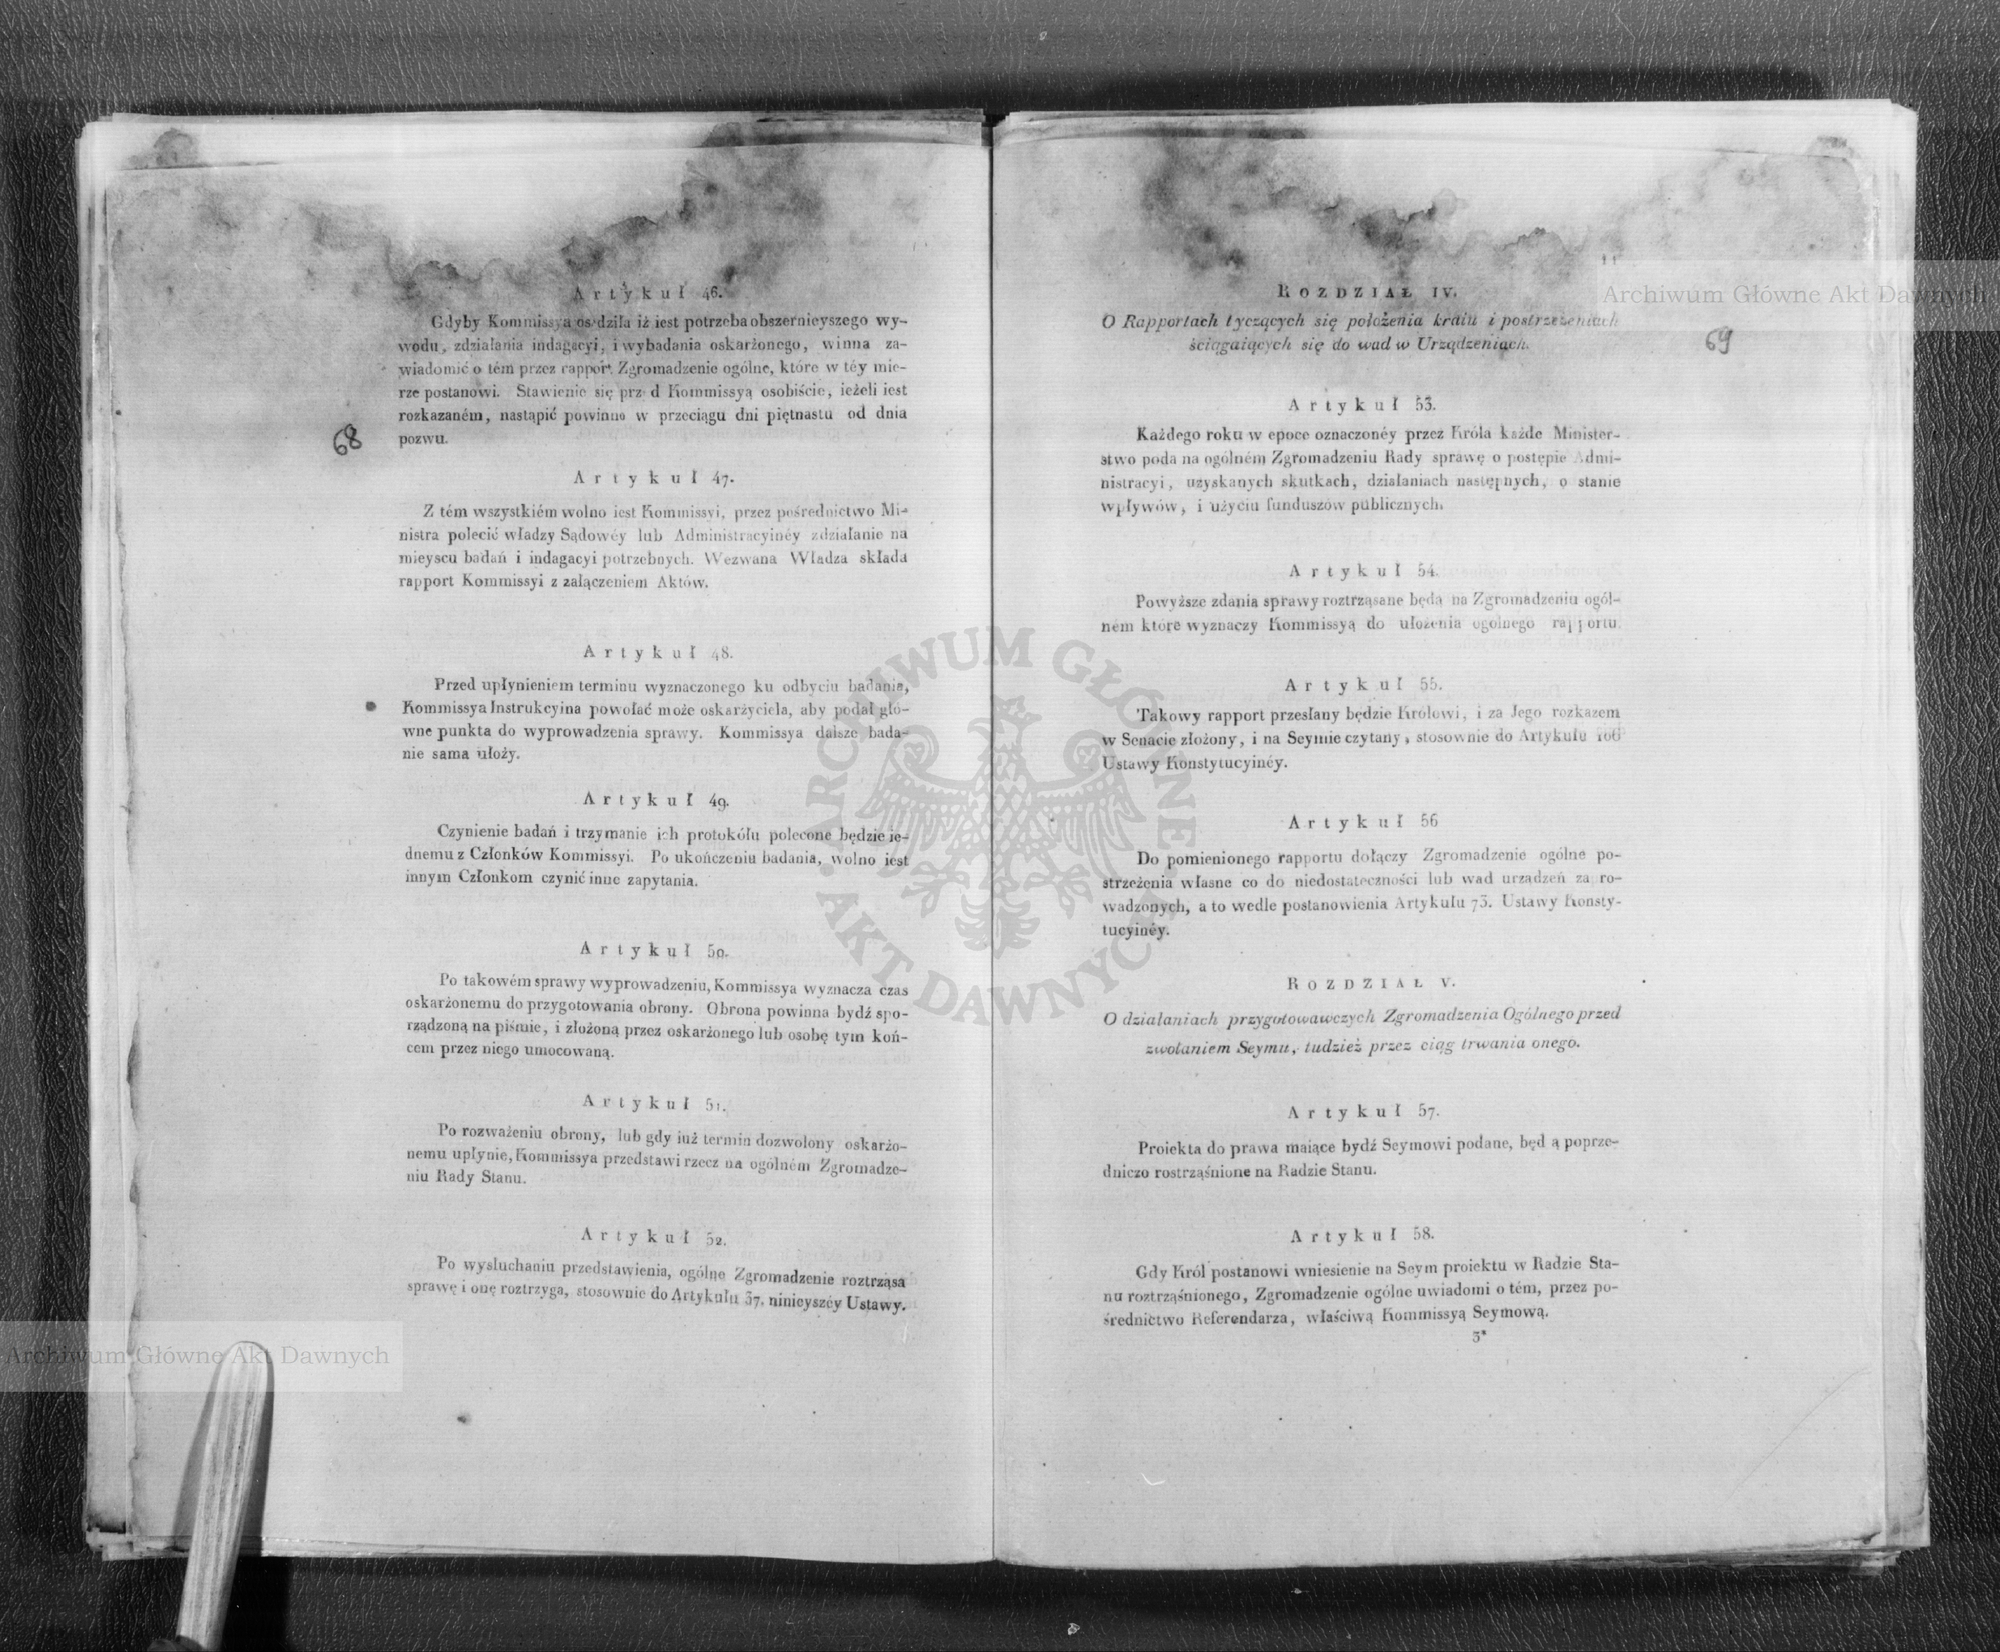 Artykuł 46.
Gdyby Kommissya osądziła iż iest potrzeba obszernieyszego wy-
wodu, zdziałania indagacyi, i wybadania oskarżonego, winna za-
wiadomić o tém przez rapport Zgromadzenie ogólne, które w téy mie-
rze postanowi. Stawienie się przed Kommissyą osobiście, ieżeli iest
rozkazaném, nastąpić powinno w przeciągu dni piętnastu od dnia
pozwu.
68
Artykuł 47.
Z tém wszystkiém wolno iest Kommissyi, przez pośrednictwo Mi-
nistra polecić władzy Sądowéy lub Administracyinéy zdziałanie na
mieyscu badań i indagacyi potrzebnych. Wezwana Władza składa
rapport Kommissyi z załączeniem Aktów.
Artykuł 48.
Przed upłynieniem terminu wyznaczonego ku odbyciu badania,
Kommissya Instrukcyina powołać może oskarżyciela, aby podał głó-
wne punkta do wyprowadzenia sprawy. Kommissya dalsze bada-
nie sama ułoży.
Artykuł 49.
Czynienie badań i trzymanie ich protokółu polecone będzie ie-
dnemu z Członków Kommissyi. Po ukończeniu badania, wolno iest
innym Członkom czynić inne zapytania.
Artykuł 50.
Po takowém sprawy wyprowadzeniu, Kommissya wyznacza czas
oskarżonemu do przygotowania obrony. Obrona powinna bydź spo-
rządzoną na piśmie, i złożoną przez oskarżonego lub osobę tym koń-
cem przez niego umocowaną.
Artykuł 51.
Po rozważeniu obrony, lub gdy iuż termin dozwolony oskarżo-
nemu upłynie, Kommissya przedstawi rzecz na ogólném Zgromadze-
niu Rady Stanu.
Artykuł 52.
Po wysłuchaniu przedstawienia, ogólne Zgromadzenie roztrząsa
sprawę i onę roztrzyga, stosownie do Artykułu 37, ninieyszéy Ustawy.
Archiwum Główne Akt Dawnych
11
ROZDZIAŁ IV.
O Rapportach tyczących się położenia kraiu i postrzeżeniach
ściągaiących się do wad w Urządzeniach.
Archiwum Główne Akt Dawnych
69
Artykuł 53.
Każdego roku w epoce oznaczonéy przez Króla każde Minister-
stwo poda na ogólném Zgromadzeniu Rady sprawę o postępie Admi-
nistracyi, uzyskanych skutkach, działaniach następnych, o stanie
wpływów, i użyciu funduszów publicznych.
Artykuł 54.
Powyższe zdania sprawy roztrząsane będą na Zgromadzeniu ogól-
nem które wyznaczy Kommissyą do ułożenia ogólnego rapportu.
Artykuł 55.
Takowy rapport przesłany będzie Królowi, i za Jego rozkazem
w Senacie złożony, i na Seymie czytany, stosownie do Artykułu 106
Ustawy Konstytucyinéy.
Artykuł 56
Do pomienionego rapportu dołączy Zgromadzenie ogólne po-
strzeżenia własne co do niedostateczności lub wad urządzeń zapro-
wadzonych, a to wedle postanowienia Artykułu 73. Ustawy Konsty-
tucyinéy.
ROZDZIAŁ V.
O działaniach przygotowawczych Zgromadzenia Ogólnego przed
zwołaniem Seymu, tudzież przez ciąg trwania onego.
Artykuł 57.
Proiekta do prawa maiące bydź Seymowi podane, będą poprze-
dniczo rostrząśnione na Radzie Stanu.
Artykuł 58.
Gdy Król postanowi wniesienie na Seym proiektu w Radzie Sta-
nu roztrząśnionego, Zgromadzenie ogólne uwiadomi o tém, przez po-
średnictwo Referendarza, właściwą Kommissyą Seymową.
3*
ARCHIWUM GŁÓWNE
AKT DAWNYCH